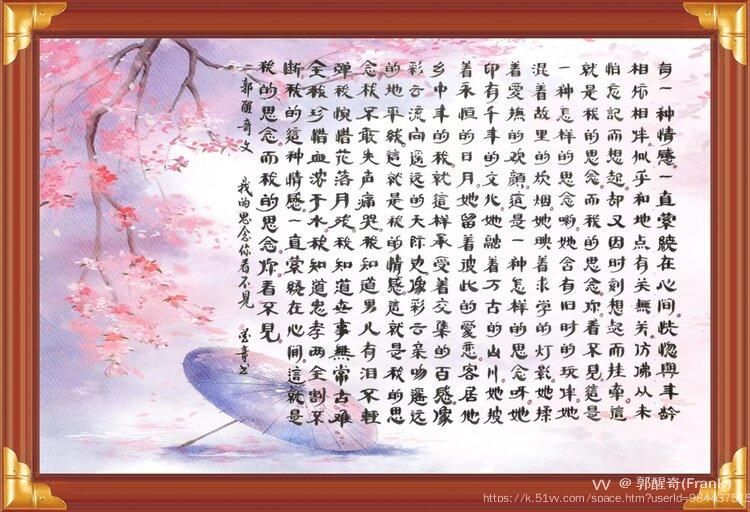 有一种情感。一直萦繞在心间。恍惚與年龄
相标相伴。似乎和地点有关無关。仿佛从未
怕忘記而想起。却又因时刻想起而挂牵。這
就是我的思念。而我的思念你看不見。這是
一种怎样的思念喲。她含有旧时的玩伴。她
混着故里的炊烟。她映着求学的灯影。她揉
着愛撫的欢顏。這是一种怎样的思念呀。她
印有千年的文化。她融着万古的山川。她披
着永恒的日月。她留着彼此的愛恋。客居他
乡中年的我。就這样承受着交集的百感。像
彩云流向遥远的天际。也像彩云亲吻遥远
的地平线。這就是我的情感。這就是我的思
念。我不敢失声痛哭。我知道男儿有泪不輕
弹。我惋惜花落月残。我知道世事無常古难
全。我珍惜血浓于水。我知道忠孝两全割不
断。我的這种情感。一直萦繞在心间。這就是
我的思念。而我的思念。你看不見。
郭醒奇文 我的思念你看不見 书
VV @ 郭醒奇(Frank)